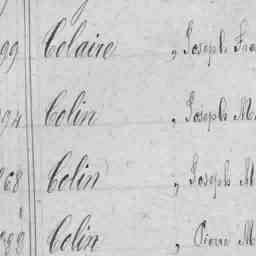 99 Celaire „ Joseph Fra
94 Colin „ Joseph M
68 Colin „ Joseph M
Colin „ Pierre M